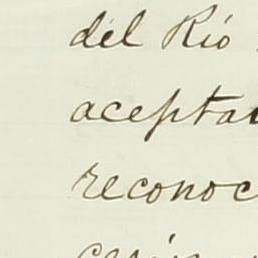 del Río
acepta
reconoc